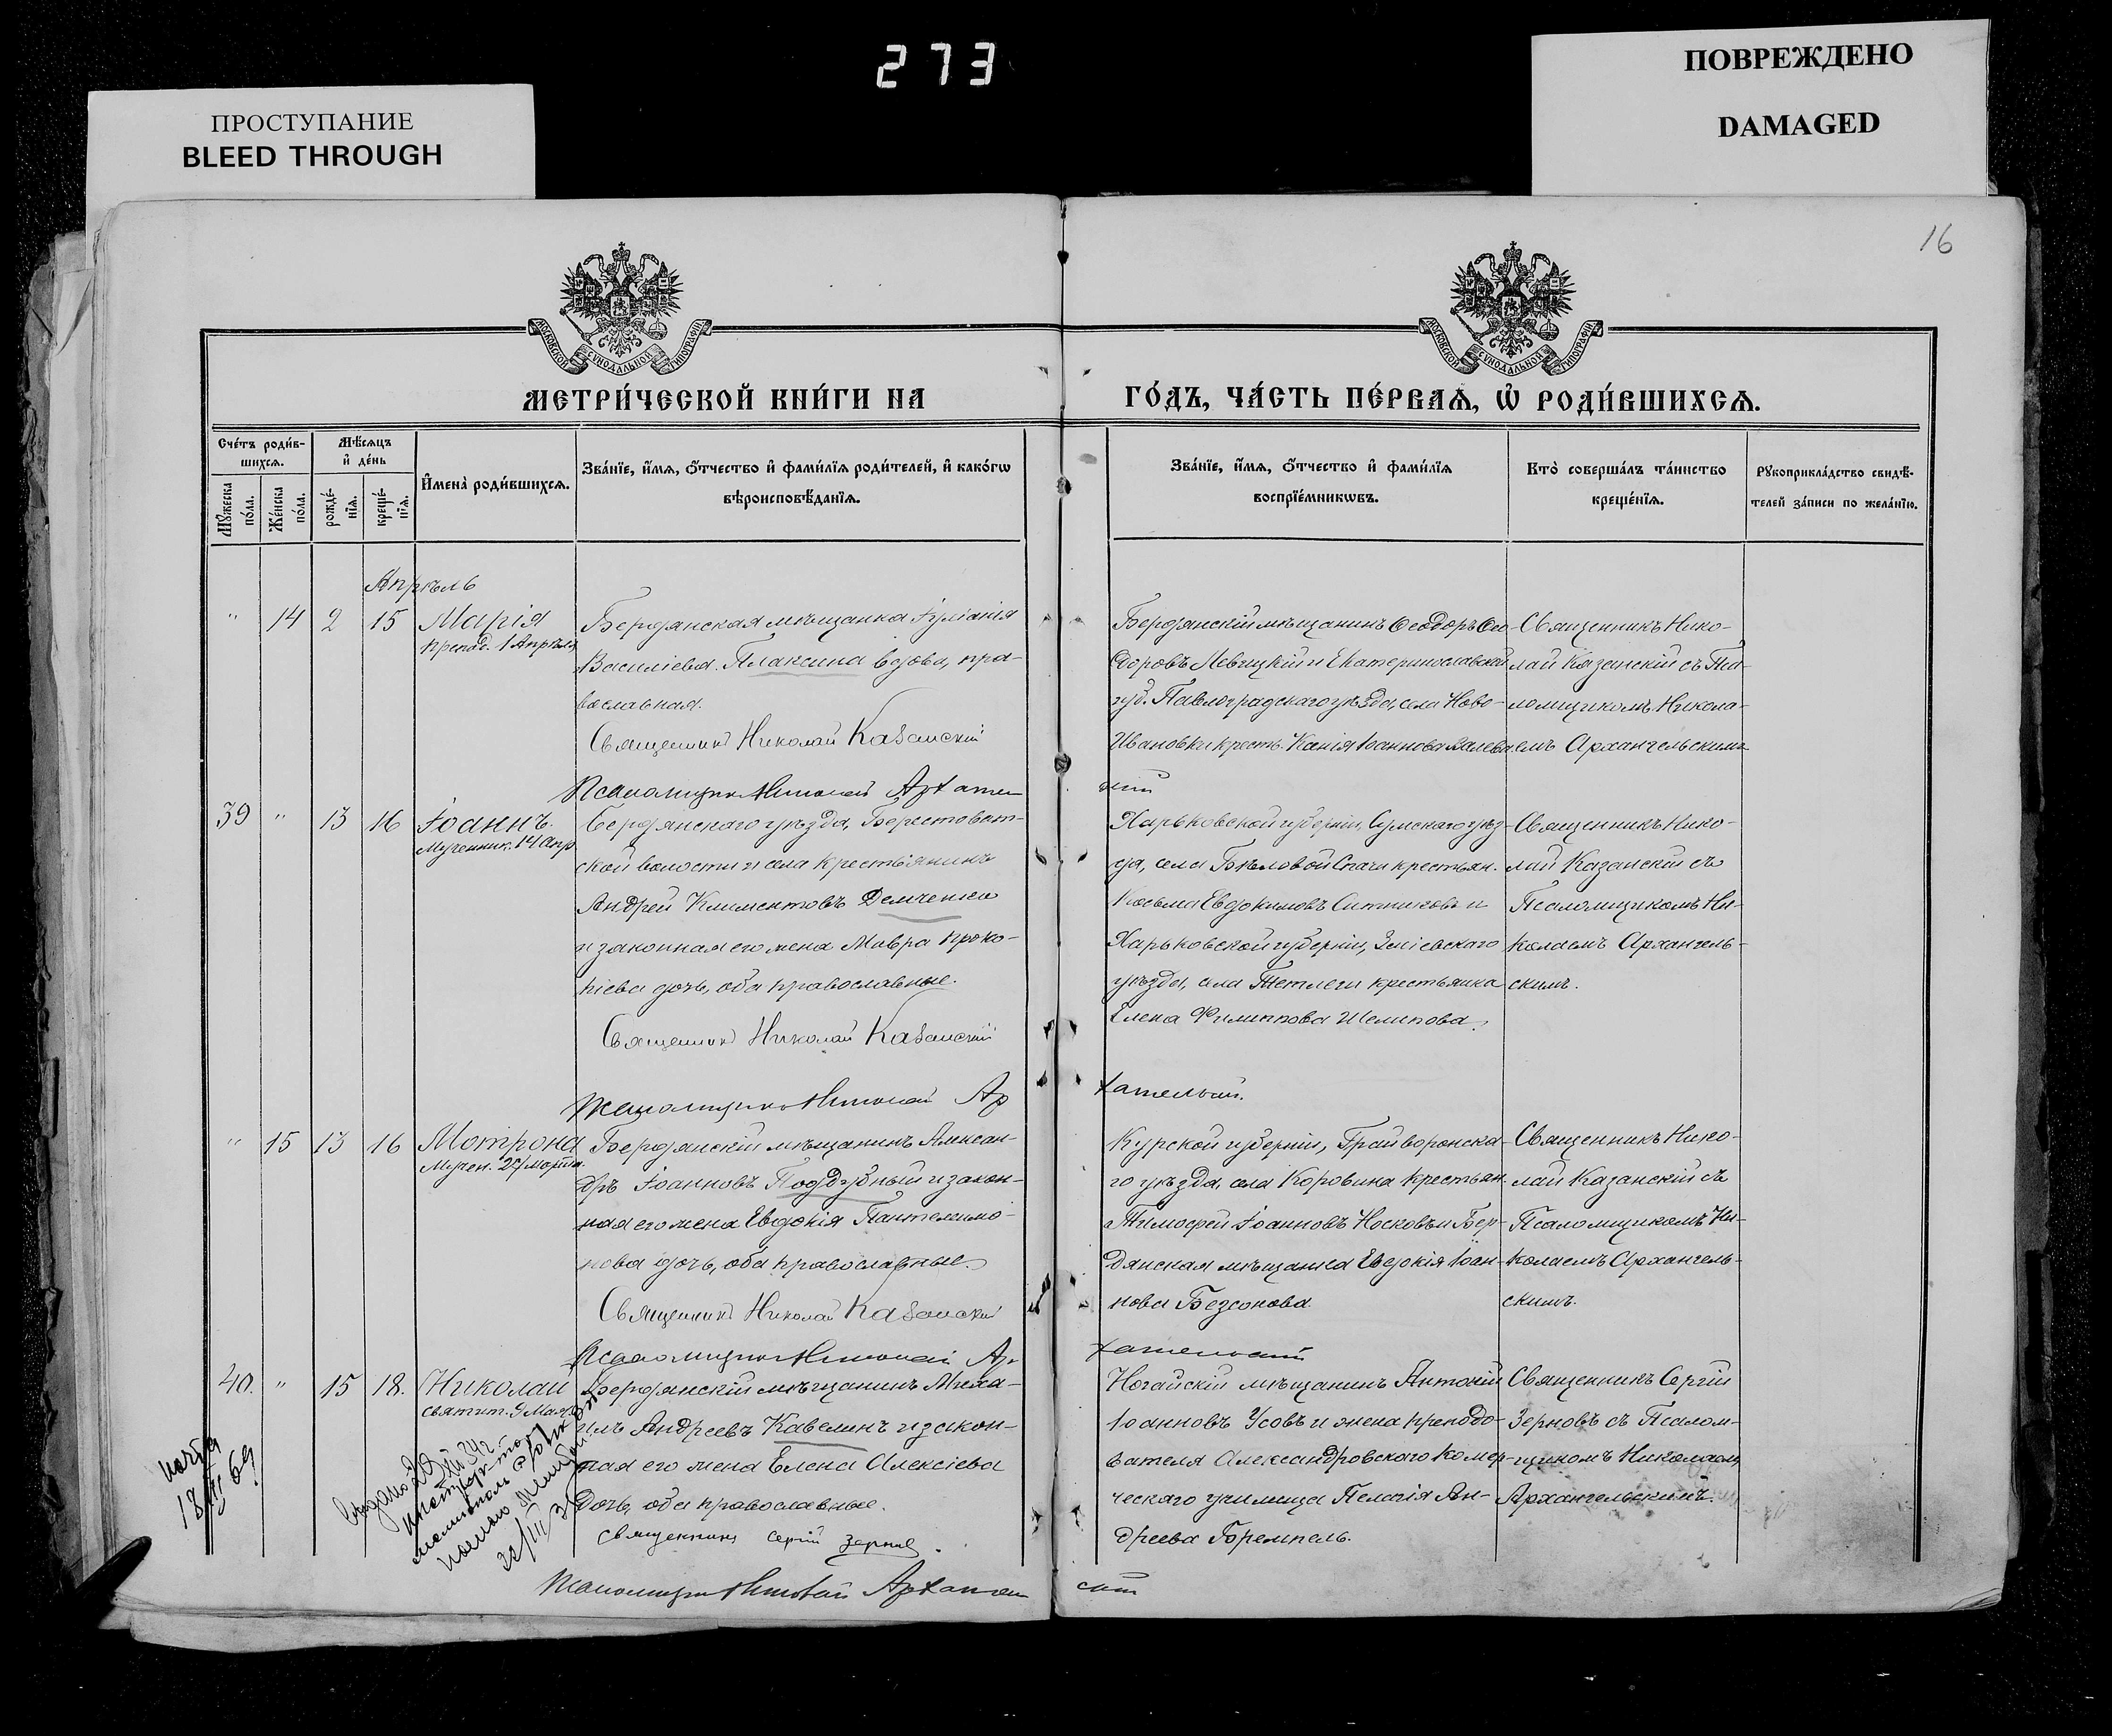 273
ПРОСТУПАНИЕ
BLEED THROUGH
ПОВРЕЖДЕНО
DAMAGED
16
МОСКОВСКОЙ СѴНОДАЛЬНОЙ ТИПОГРАФІИ
МОСКОВСКОЙ СѴНОДАЛЬНОЙ ТИПОГРАФІИ
МЕТРИ́ЧЕСКОЙ КНИ́ГИ НА
ГО́ДЪ, ЧА́СТЬ ПЕ́РВАѦ, Ѡ РОДИ́ВШИХСѦ.
Сче́тъ роди́в-
шихсѧ.
Мѣ́сѧцъ
и҆ де́нь
Мꙋ́жеска по́ла.
Же́нска по́ла.
рожде́-нїѧ.
креще́-нїѧ.
И҆мена̀ роди́вшихсѧ.
Зва́нїе, и҆́мѧ, ѻ҆́тчество и҆ фами́лїѧ роди́телей, и҆ како́гѡ
вѣроисповѣ́данїѧ.
Зва́нїе, и҆́мѧ, ѻ҆́тчество и҆ фами́лїѧ
воспрїе́мникѡвъ.
Кто̀ соверша́лъ та́инство
креще́нїѧ.
Рꙋкоприкла́дство свидѣ́-
телей за́писи по жела́нїю.
Апрѣль
" 14 2 15 Марія
препод. 1 Апрѣля
Бердянская мѣщанка Іуліанія
Василіева Плаксина вдова, пра-
вославная.
Священникъ Николай Казанскій
Псаломщикъ Николай Архангельскій
Бердянскій мѣщанинъ Ѳеодоръ Ѳео-
доровъ Левицкій и Екатеринославской
губ. Павлоградскаго уѣзда, села Ново-
Ивановки крест. Іоаннова
Священникъ Нико-
лай Казанскій съ Пса-
ломщикомъ Никола-
емъ Архангельскимъ
39 " 13 16 Іоаннъ.
Мученник. 14 Апр.
Бердянскаго уѣзда, Берестоват-
ской волости и села крестьянинъ
Андрей Климентовъ Демченко
и законная его жена Мавра Проко-
піева дочь, оба православные.
Священникъ Николай Казанскій
Псаломщикъ Николай Архангельскій.
Харьковской губерніи, Сумскаго уѣз-
да, села Бѣловой крестьян.
Косьма Евдокимовъ Ситниковъ и
Харьковской губерніи, Зміевскаго
уѣзда, села Тетлеги крестьянка
Елена Филиппова Шелипова.
Священникъ Нико-
лай Казанскій съ
Псаломщикомъ Ни-
колаемъ Архангель-
скимъ.
" 15 13 16 Мотрона
Мучен. 27 марта.
Бердянскій мѣщанинъ Алексан-
дръ Іоанновъ Поддубный и закон-
ная его жена Евдокія Пантелеимо-
нова дочь, оба православные.
Священникъ Николай Казанскій
Псаломщикъ Николай Архангельскій
Курской губерніи, Грайворонска-
го уѣзда, села Коровина крестьян.
Тимоѳей Іоанновъ Носковъ и Бер-
дянская мѣщанка Евдокія Іоан-
нова Безсонова.
Священникъ Нико-
лай Казанскій съ
Псаломщикомъ Ни-
колаемъ Архангель-
скимъ.
40. " 15 18. Николай
святит. 9 Мая
Бердянскій мѣщанинъ Миха-
илъ Андреевъ Кавелинъ и закон-
ная его жена Елена Алексіева
дочь, оба православные.
Священникъ Сергій Зерновъ.
Псаломщикъ Николай Архангельскій
Ногайскій мѣщанинъ Антоній
Іоанновъ Усовъ и жена препода-
вателя Александровскаго Комер-
ческаго училища Пелагія Ан-
дреева Бремпель.
Священникъ Сергій
Зерновъ съ Псалом-
щикомъ Николаемъ
Архангельскимъ.